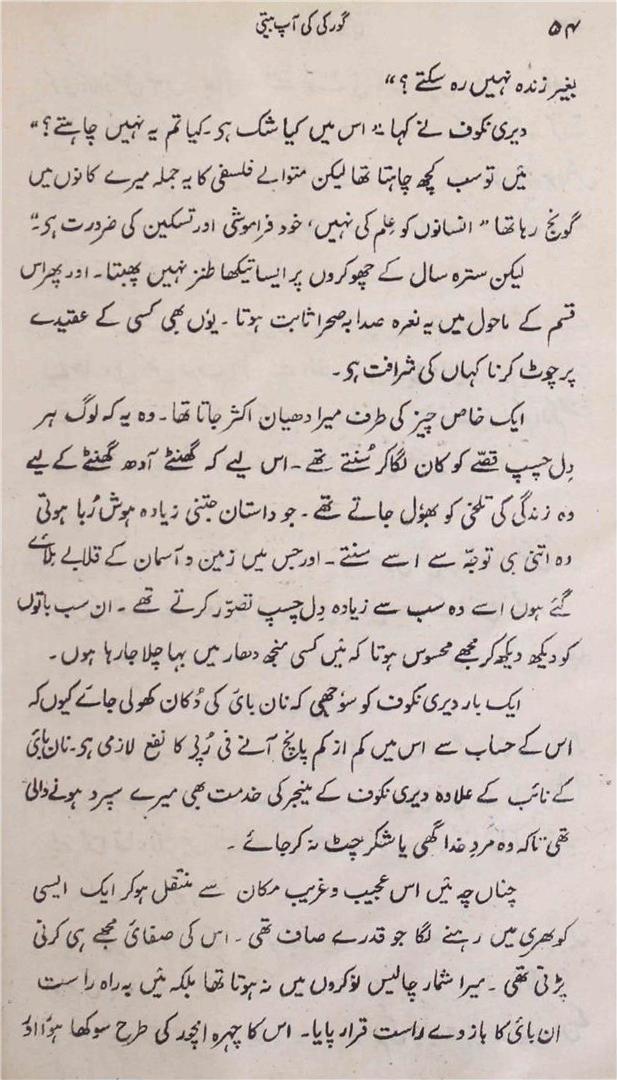 ۵۴
گورکی کی آپ بیتی
بغیر زندہ نہیں رہ سکتے؟"
دیری نکوف نے کہا " اس میں کیا شک ہی۔ کیا تم یہ نہیں چاہتے؟"
میں تو سب کچھ چاہتا تھا لیکن متوالے فلسفی کا یہ جملہ میرے کانوں میں
گونج رہا تھا " انسانوں کو علم کی نہیں، خود فراموشی اور تسکین کی ضرورت ہی۔"
لیکن سترہ سال کے چھوکروں پر ایسا تیکھا طنز نہیں پھبتا۔ اور پھر اس
قسم کے ماحول میں یہ نعرہ صدا بہ صحرا ثابت ہوتا۔ یوں بھی کسی کے عقیدے
پر چوٹ کرنا کہاں کی شرافت ہی۔
ایک خاص چیز کی طرف میرا دھیان اکثر جاتا تھا۔ وہ یہ کہ لوگ ہر
دِل چسپ قصّے کو کان لگا کر سُنتے تھے۔ اس لیے کہ گھنٹے آدھ گھنٹے کے لیے
وہ زندگی کی تلخی کو بھول جاتے تھے۔ جو داستان جتنی زیادہ ہوش رُبا ہوتی
وہ اتنی ہی توجّہ سے اسے سنتے۔ اور جس میں زمین و آسمان کے قلابے ملائے
گئے ہوں اسے وہ سب سے زیادہ دِل چسپ تصوّر کرتے تھے۔ ان سب باتوں
کو دیکھ دیکھ کر مجھے محسوس ہوتا کہ میں کسی منجھ دھار میں بہا چلا جا رہا ہوں۔
ایک بار دیری نکوف کو سوٗجھی کہ نان بائی کی دُکان کھولی جائے کیوں کہ
اس کے حساب سے اس میں کم از کم پانچ آنے فی رُپی کا نفع لازمی ہی۔ نان بائی
کے نائب کے علاوہ دیری نکوف کے منیجر کی خدمت بھی میرے سپرد ہونے والی
تھی تاکہ وہ مردِ خدا گھی یا شکر چٹ نہ کر جائے۔
چناں چہ میں اس عجیب و غریب مکان سے منتقل ہو کر ایک ایسی
کوٹھری میں رہنے لگا جو قدرے صاف تھی۔ اس کی صفائی مجھے ہی کرنی
پڑتی تھی۔ میرا شمار چالیس نوکروں میں نہ ہوتا تھا بلکہ میں بہ راہ راست
ان بائی کا بازوے راست قرار پایا۔ اس کا چہرہ انچور کی طرح سوکھا ہؤا اور